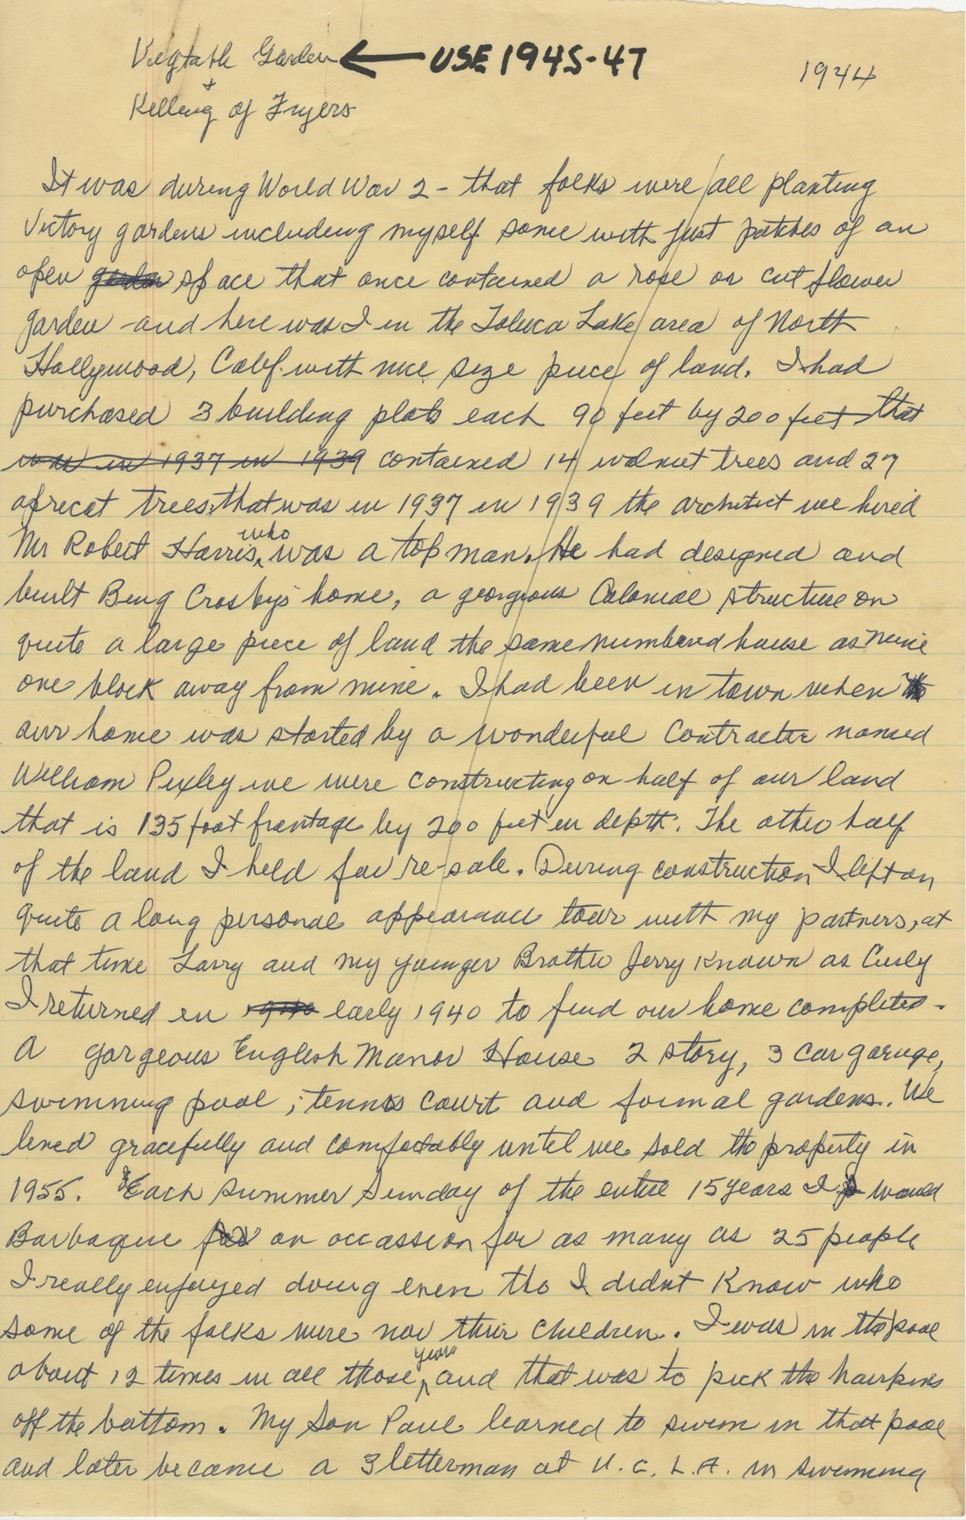 Vegtable Garden ← USE 1945-47
1944
+
Killing of Fryers
It was during World War 2 - that folks were all planting
Victory gardens including myself some with just patches of an
open garden space that once contained a rose or cut flower
garden - and here was I in the Toluca Lake area of North
Hollywood, Calif. with nice size piece of land. I had
purchased 3 building plots each 90 feet by 200 feet that
was in 1937 in 1939 contained 14 walnut trees and 27
apricot trees, that was in 1937 in 1939 the architect we hired
Mr Robert Harris, who was a top man. He had designed and
built Bing Crosby's home, a georgious Colonial structure on
quite a large piece of land the same numbered house as mine
one block away from mine. I had been in town when
our home was started by a wonderful Contractor named
William Pixley we were constructing on half of our land
that is 135 foot frontage by 200 feet in depth. The other half
of the land I held for re-sale. During construction I left on
quite a long personal appearance tour with my partners, at
that time Larry and my younger Brother Jerry Known as Curly
I returned in 1940 early 1940 to find our home completed -
A gorgeous English Manor House 2 story, 3 car garage,
swimming pool, tennis court and formal gardens. We
lived gracefully and comfortably until we sold the property in
1955. Each summer Sunday of the entire 15 years I would
Barbaque for on occassion for as many as 25 people
I really enjoyed doing even tho I didnt Know who
some of the folks were nor their children. I was in the pool
about 12 times in all those years, and that was to pick the hairpins
off the bottom. My Son Paul learned to swim in that pool
and later became a 3 letterman at U.C.L.A. in swimming